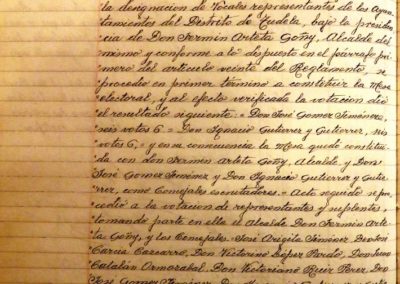 la designacion de Vocales representantes de los Ayun-
tamientos del Distrito de Tudela, bajo la presiden-
cia de Don Fermin Arteta Goñy, Alcalde del
mismo y conforme a lo dispuesto en el párrafo pri-
mero del articulo veinte del Reglamento, se
procedio en primer termino a constituir la Mesa
electoral, y al efecto verificada la votacion dió
el resultado siguiente. = Don José Gomez Jimenez,
seis votos 6. = Don Ignacio Gutierrez y Gutierrez, seis
votos 6, = y en su consecuencia la Mesa quedó constitui-
da con don Fermin Arteta Goñy, Alcalde, y Don
José Gomez Jimenez y Don Ignacio Gutierrez y Gutie-
rrez, como Concejales escrutadores. = Acto seguido se pro-
cedió a la votacion de representantes y suplentes,
tomando parte en ella el Alcalde Don Fermin Arte-
ta Goñy, y los Concejales. = José Arigita Jimenez Don José
Garcia Don Victorino Lopez Pardo, Don Juan
Catalán Don Victoriano Ruiz Perez, Don
José Gomez Jimenez, Don